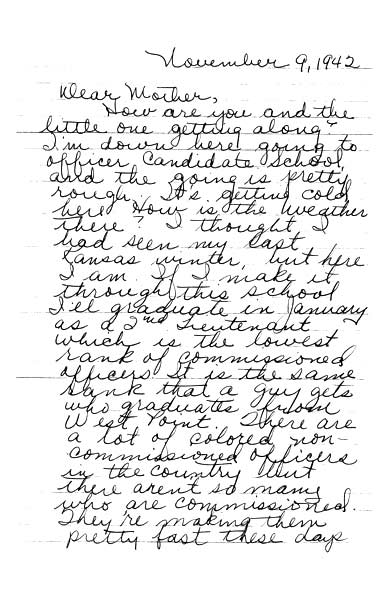 November 9, 1942
Dear Mother,
How are you and the
little one getting along?
I'm down here going to
officer Candidate School,
and the going is pretty
rough. It's getting cold
here. How is the weather
there? I thought I
had seen my last
Kansas winter, but here
I am. If I make it
through this school
I'll graduate in January
as a 2nd Lieutenant
which is the lowest
rank of commissioned
officers. It is the same
rank that a guy gets
who graduates from
West Point. There are
a lot of colored non-
commissioned officers
in the country but
there arent so many
who are commissioned.
They're making them
pretty fast these days